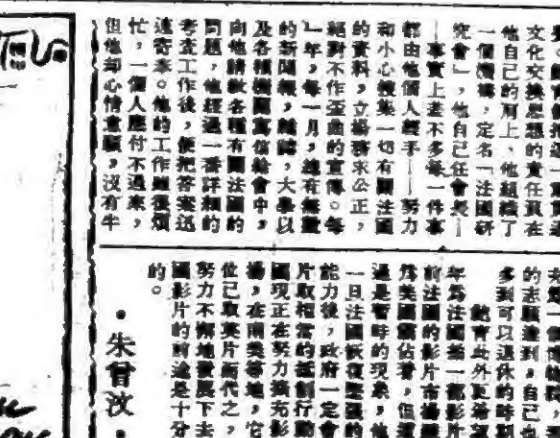 文化交換思想的責任負在
他自己的肩上、他組織了
一個機構，定名「法國研
究會」，他自己任會長—
—事實上差不多每一件事
都由他個人經手——努力
和小心搜集一切有關法國
的資料，立論務求公正，
絕對不作歪曲的宣傳。每
一年，每一月，總有無數
的新聞報，雜誌，大學以
及各種機關寫信給會中，
向他請教各種有關法國的
問題，他經過一番詳細的
考查工作後，便把答案迅
速寄來。他的工作雖很煩
忙，一個人應付不過來，
但他却心情意願，沒有半
的志願達到，自己也
多到可以退休的時期
鮑育此外更希望
年爲法國第一部影片
前法國的影片市場雖
爲美國霸佔着，但這
過是暫時的現象，他
一旦法國恢復堅強的
能力後，政府一定會
片取相當的抵制行動
國現正在努力擴充影
場，在南美等地，它
位已取英片而代之，
努力不懈地發展下去
國影片的前途是十分
的。
•朱曾汶•